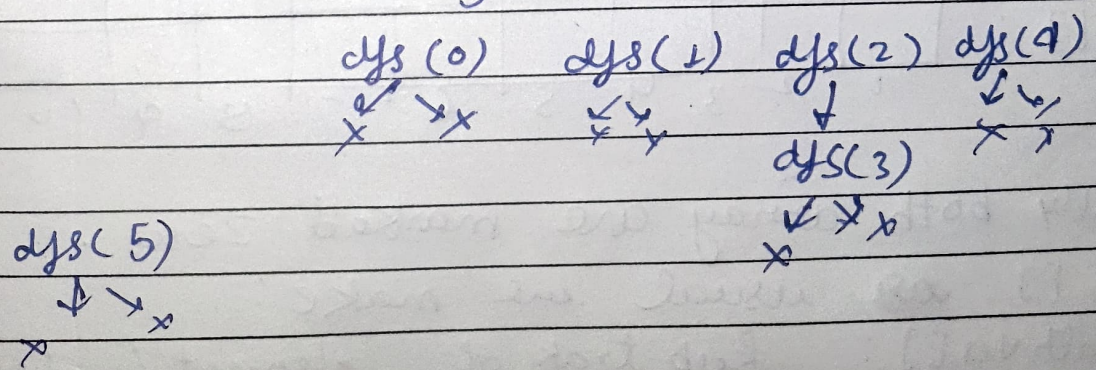 dfs(0) dfs(1) dfs(2) dfs(4)
x x x x x x
dfs(3)
x x
dfs(5)
x
x